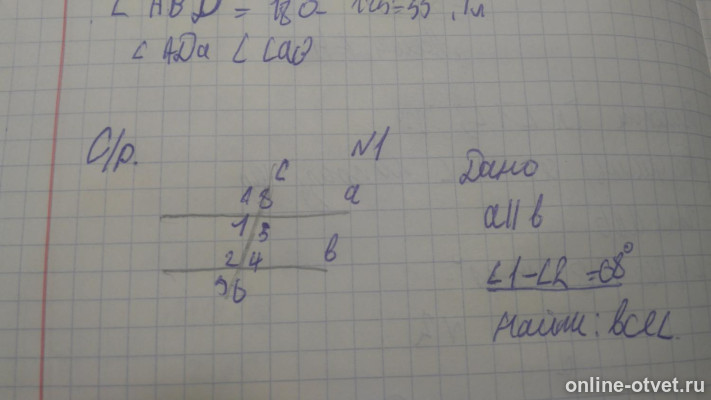 ∠ ABD = 180 - 125=55
∠ ADa ∠
С/р.
N1
c
1 8
a
1 3
2 4
b
5 6
Дано
a || b
∠1-∠2 =68°
Найти: все∠.
online-otvet.ru